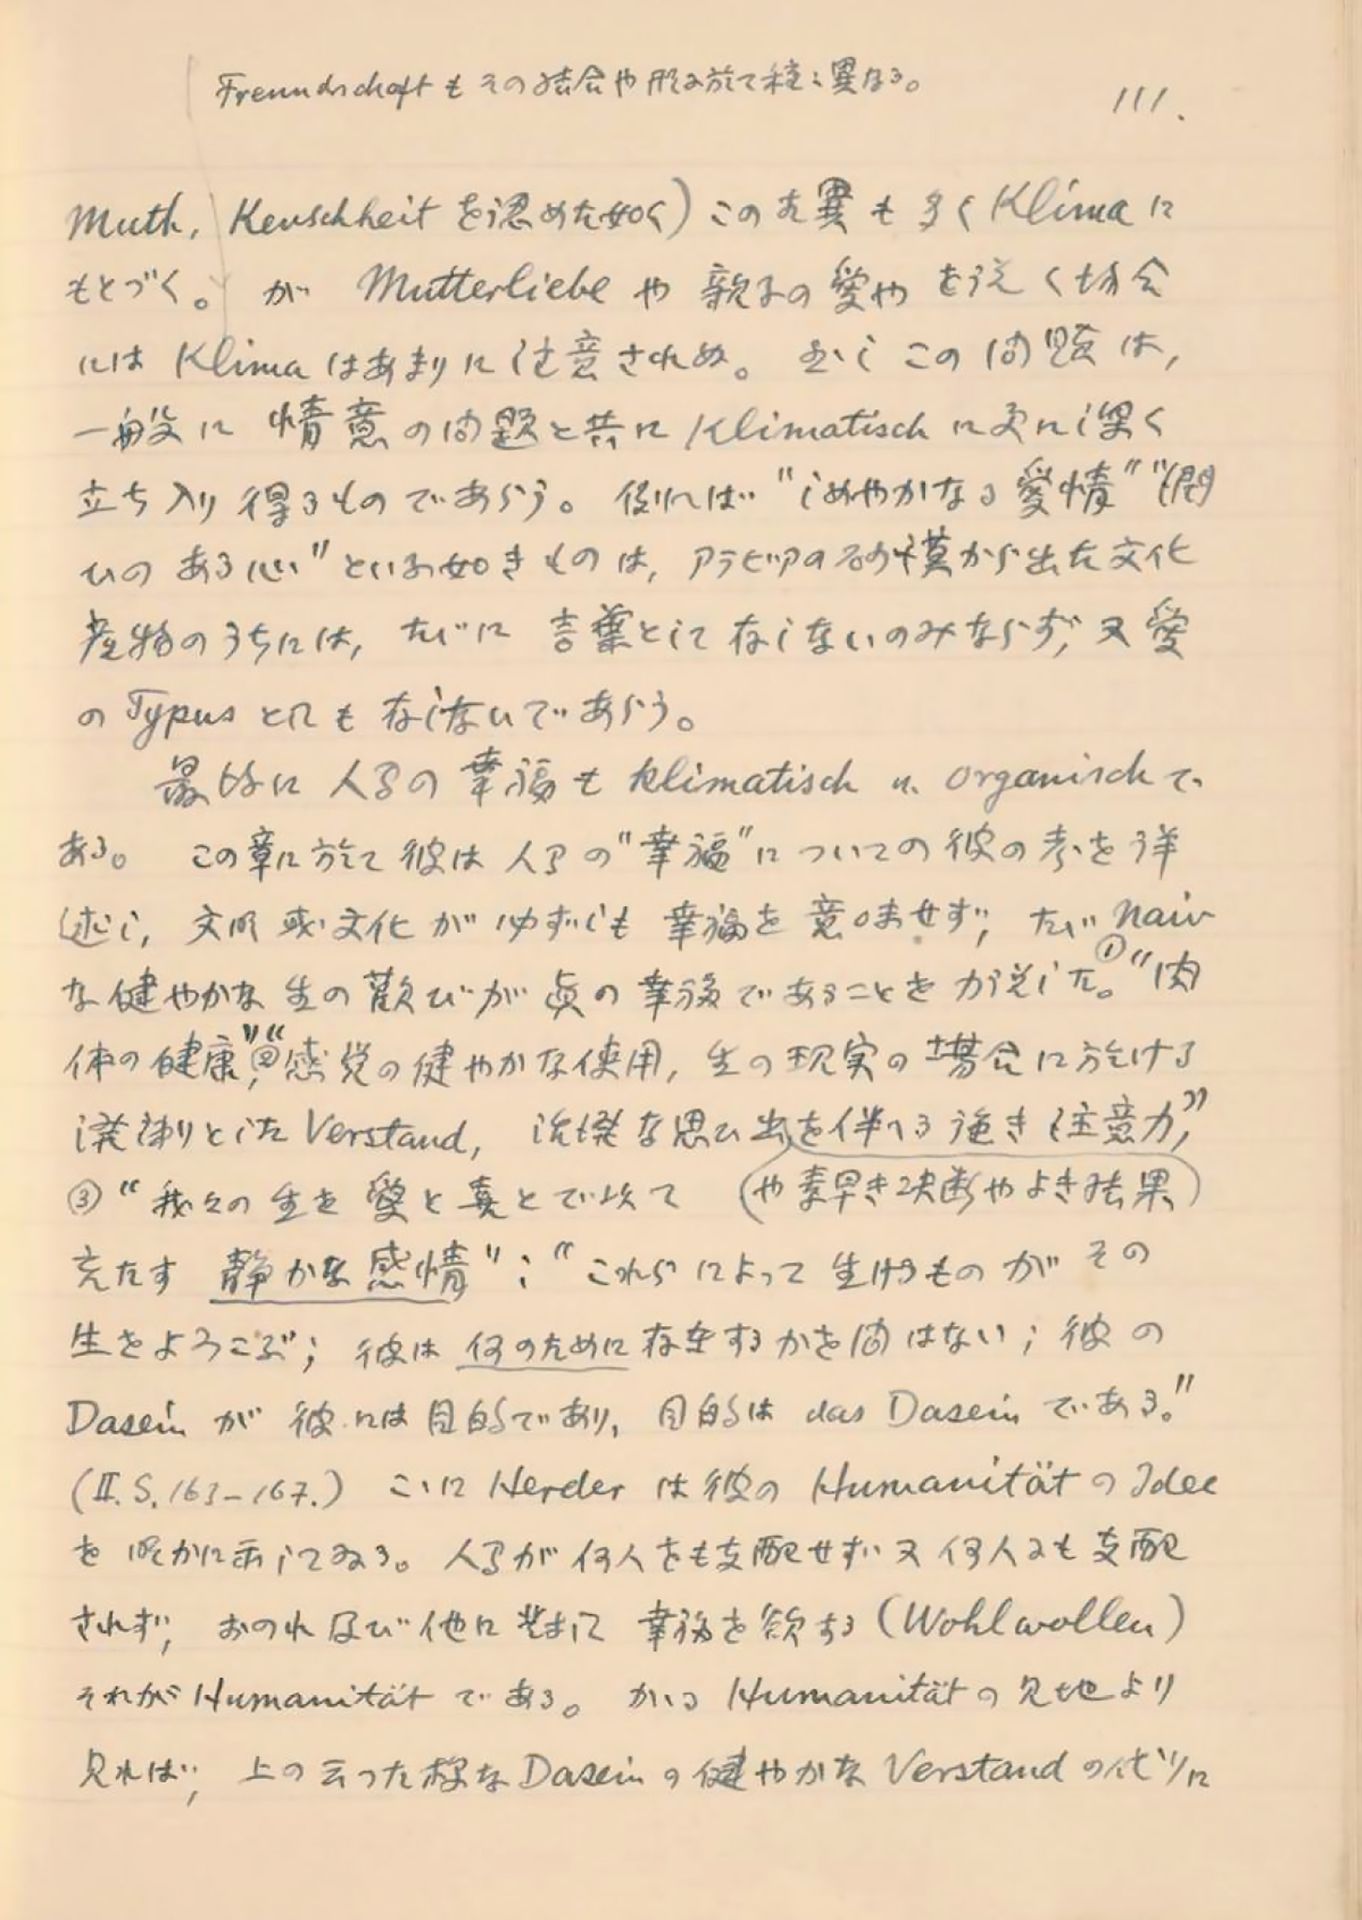 Freundschaftもその結合や形に於て種々異なる。
111.
Muth, Keuschheitを認めた如く)この差異も多くKlimaに
もとづく。が Mutterliebeや親子の愛やを説く場合
にはKlimaはあまりに注意されぬ。然しこの問題は,
一般に情意の問題と共にKlimatischに更に深く
立ち入り得るものであらう。例へば“しめやかなる愛情”“潤
ひのある心”といふ如きものは, アラビアの砂漠から出た文化
産物のうちには, たゞに言葉として存しないのみならず, 又愛
のTypusとしても存しないであらう。
最後に人間の幸福もklimatisch u. organischで
ある。この章に於て彼は人間の“幸福”についての彼の考を詳
述し, 文明或は文化が必ずしも幸福を意味せず, たゞnaiv
な健やかな生の歓びが真の幸福であることを力説した。①“肉
体の健康”, ②“感覚の健やかな使用, 生の現実の場合に於ける
溌溂とした Verstand, 活溌な思ひ出を伴へる強き注意力,”
③“我々の生を愛と真とで以て (や素早き決断やよき結果)
充たす静かな感情”;“これらによって生けるものがその
生をよろこぶ; 彼は何のために存在するかを問はない; 彼の
Daseinが彼には目的であり, 目的はdas Daseinである。”
(II. S. 163–167.) こゝにHerderは彼のHumanitätのIdee
を明かに示してゐる。人間が何人をも支配せず又何人にも支配
されず, おのれ及び他に対して幸福を欲する(Wohlwollen)
それがHumanitätである。かゝるHumanitätの見地より
見れば, 上の云った様なDaseinの健やかなVerstandの代りに